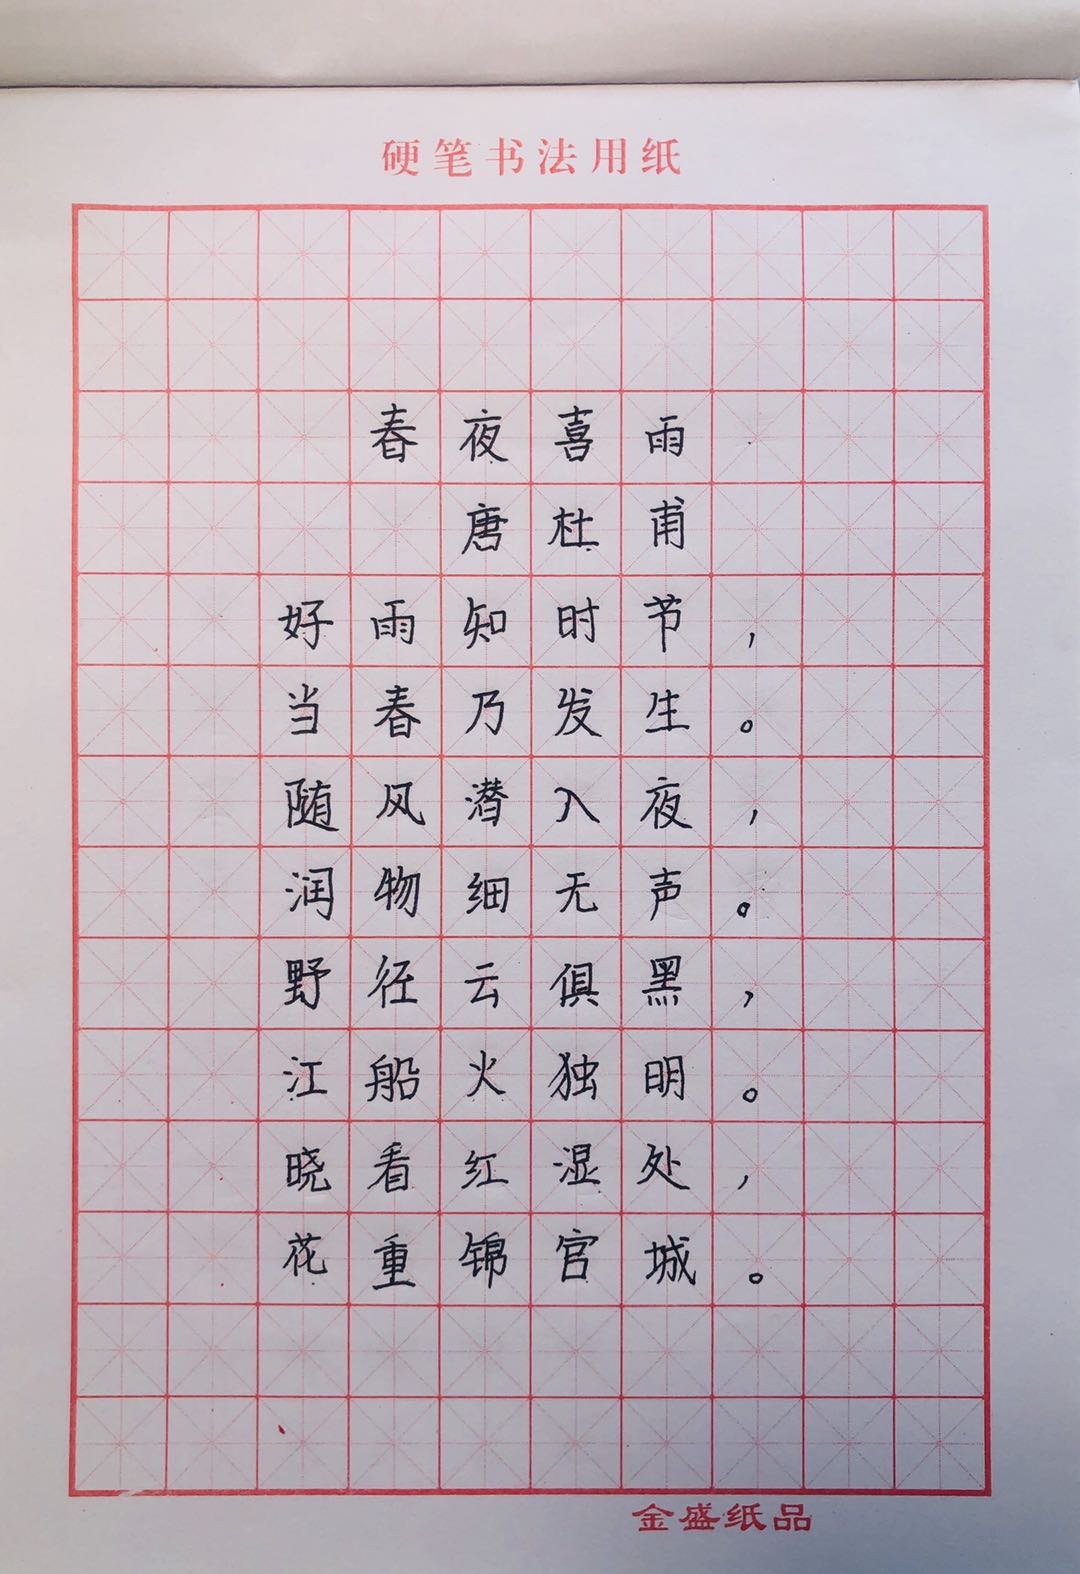 硬笔书法用纸
春夜喜雨
唐杜甫
好雨知时节，
当春乃发生。
随风潜入夜，
润物细无声。
野径云俱黑，
江船火独明。
晓看红湿处，
花重锦官城。
金盛纸品